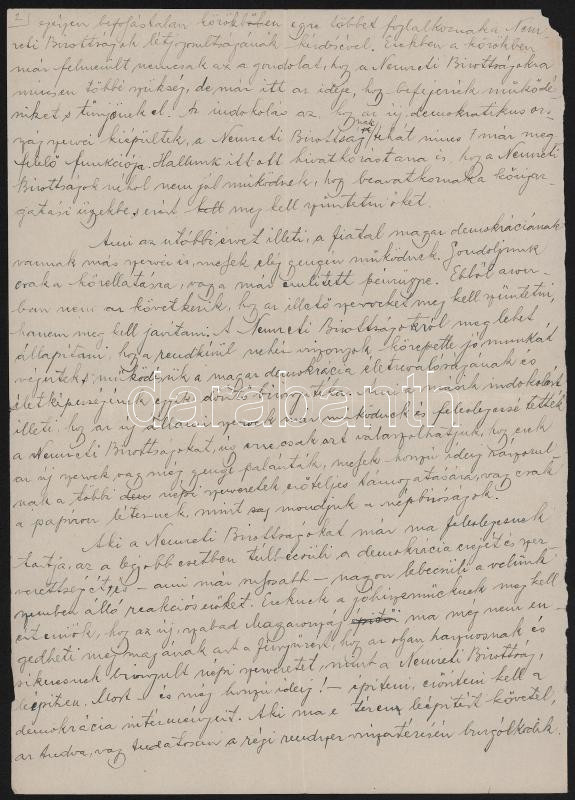 2
egyre többet foglalkoznak a Nem-
zeti Bizottságok létjogosultságának kérdésével. Ezekben a körökben
már felmerült nemcsak az a gondolat, hogy a Nemzeti Bizottságokra
nincsen többé szükség, de már itt az ideje, hogy befejezzék működé-
süket s tűnjenek el. Az indokolás az, hogy az új, demokratikus or-
szág szervei kiépültek, a Nemzeti Bizottságnak tehát nincs már meg-
felelő funkciója. Hallunk itt-ott hivatkozást arra is, hogy a Nemzeti
Bizottságok néhol nem jól működnek, hogy beavatkoznak a közigaz-
gatási ügyekbe, s ezért meg kell szüntetni őket.
Ami az utóbbi érvet illeti, a fiatal magyar demokráciának
vannak más szervei is, melyek elég gyengén működnek. Gondoljunk
csak a közellátásra, vagy a már említett pénzügyre. Ebből azon-
ban nem az következik, hogy az illető szerveket meg kell szüntetni,
hanem meg kell javítani. A Nemzeti Bizottságokról meg lehet
állapítani, hogy a rendkívül nehéz viszonyok közepette jó munkát
végeztek; működésük a magyar demokrácia életrevalóságának és
életképességének egyik döntő bizonyítéka. Ami a másik indokolást
illeti, hogy az új állami szervek már működnek és feleslegessé tették
a Nemzeti Bizottságokat, úgy erre csak azt válaszolhatjuk, hogy ezek
az új szervek vagy még gyenge palánták, melyek hosszú ideig rászorul-
nak a többi népi szervezetek erőteljes támogatására, vagy csak
a papíron léteznek, mint mondjuk a népbíróságok.
Aki a Nemzeti Bizottságokat már ma feleslegesnek
tartja, az a legjobb esetben túlbecsüli a demokrácia erejét és szer-
vezettségét, és – ami már súlyosabb – nagyon lebecsüli a velünk
szemben álló reakciós erőket. Ezeknek a jóhiszeműeknek meg kell
érteniök, hogy az új, szabad Magyarország építői ma még nem en-
gedheti meg magának azt a fényűzést, hogy az olyan hasznosnak és
sikeresnek bizonyult népi szervezetet, mint a Nemzeti Bizottság,
leépítsen. Most – és még hosszú ideig! – építeni, erősíteni kell a
demokrácia intézményeit. Aki ma e téren leépítést követel,
az tudva, vagy tudatosan a régi rendszer visszatérésén buzgólkodik.
darabanth